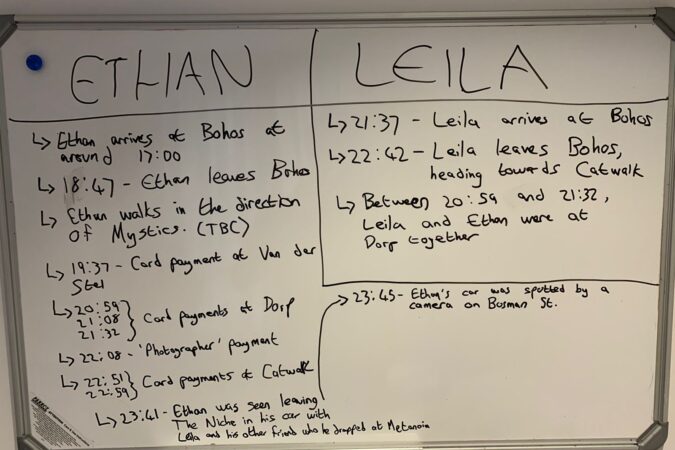 ETHAN
↳ Ethan arrives at Bohos at
around 17:00
↳ 18:47 - Ethan leaves Bohos
↳ Ethan walks in the direction
of Mystics. (TBC)
↳ 19:37 - Card payment at Van der
Stel
↳ 20:59
21:08
21:32 } Card payments at Dorp
↳ 22:08 - 'Photographer' payment
↳ 22:51
22:59 } Card payments at Catwalk
↳ 23:41 - Ethan was seen leaving
The Niche in his car with
Leila and his other friend who he dropped at Metanoia
LEILA
↳ 21:37 - Leila arrives at Bohos
↳ 22:42 - Leila leaves Bohos,
heading towards Catwalk
↳ Between 20:59 and 21:32,
Leila and Ethan were at
Dorp together
→ 23:45 - Ethan's car was spotted by a
camera on Bosman St.